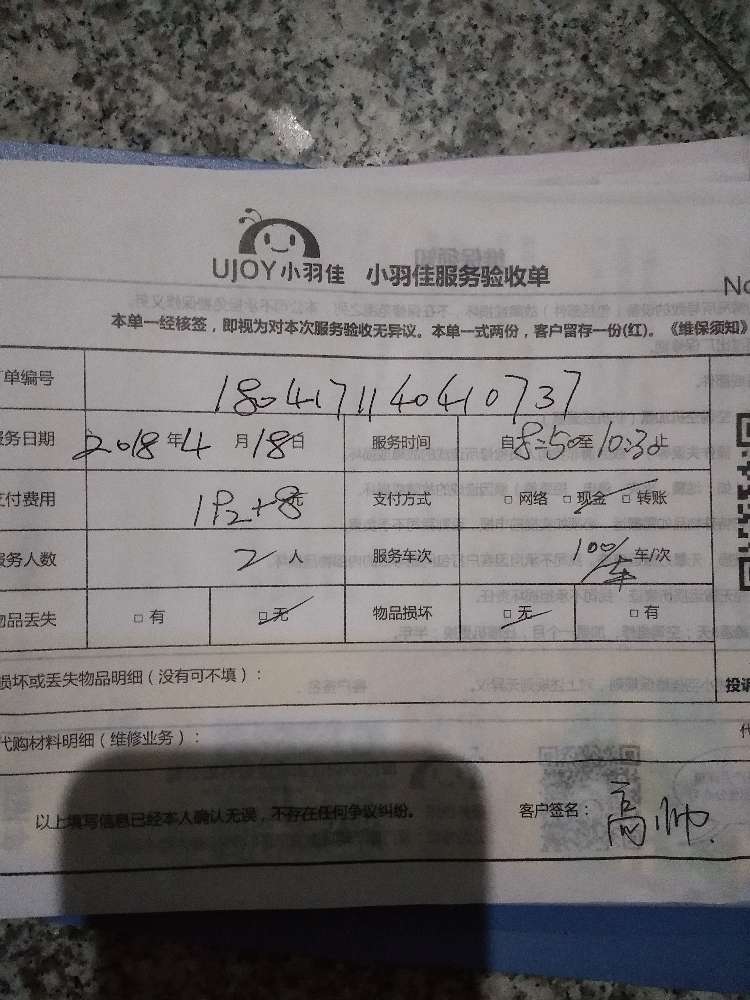 UJOY小羽佳 小羽佳服务验收单
No
本单一经核签，即视为对本次服务验收无异议。本单一式两份，客户留存一份(红)。《维保须知》
单编号 180417114041073​7
务日期 2018年4月18日 服务时间 自8:50至10:30止
支付费用 元 支付方式 □ 网络 □ 现金 □ 转账
服务人数 2人 服务车次 100/车 车/次
物品丢失 □ 有 □ 无 物品损坏 □ 无 □ 有
损坏或丢失物品明细（没有可不填）：
投诉
代购材料明细（维修业务）：
代
以上填写信息已经本人确认无误，不存在任何争议纠纷。 客户签名：高帅